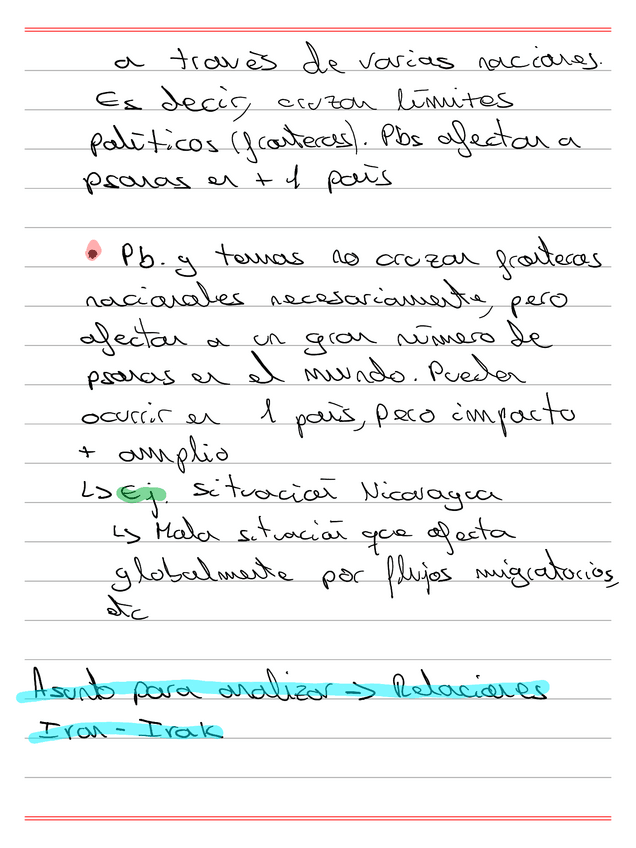 a través de varias naciones.
Es decir, cruzan límites
políticos (fronteras). Pbs afectan a
psonas en + 1 país
• Pb. y temas no cruzan fronteras
nacionales necesariamente, pero
afectan a un gran número de
psonas en el mundo. Pueden
ocurrir en 1 país, pero impacto
+ amplio
↳ Ej. situación Nicaragua
↳ Mala situación que afecta
globalmente por flujos migratorios,
etc
Asunto para analizar -> Relaciones
Iran - Irak